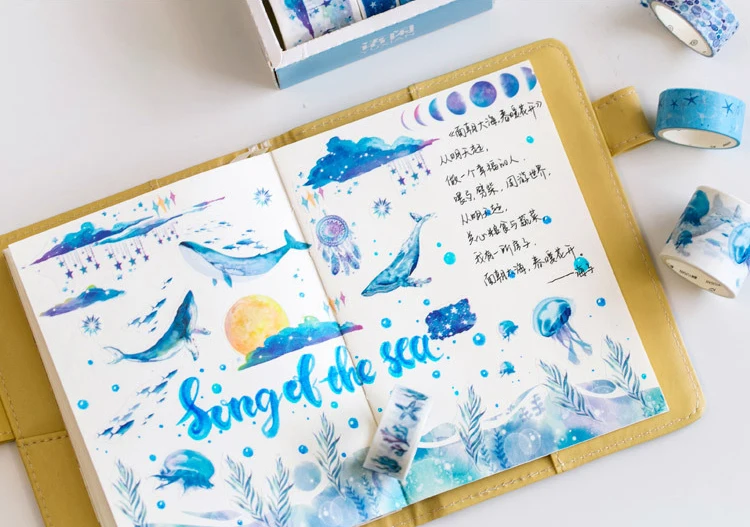 Song of the sea
《面朝大海,春暖花开》
从明天起,
做一个幸福的人.
喂马,劈柴,周游世界,
从明天起,
关心粮食与蔬菜
我有一所房子.
面朝大海,春暖花开
——海子